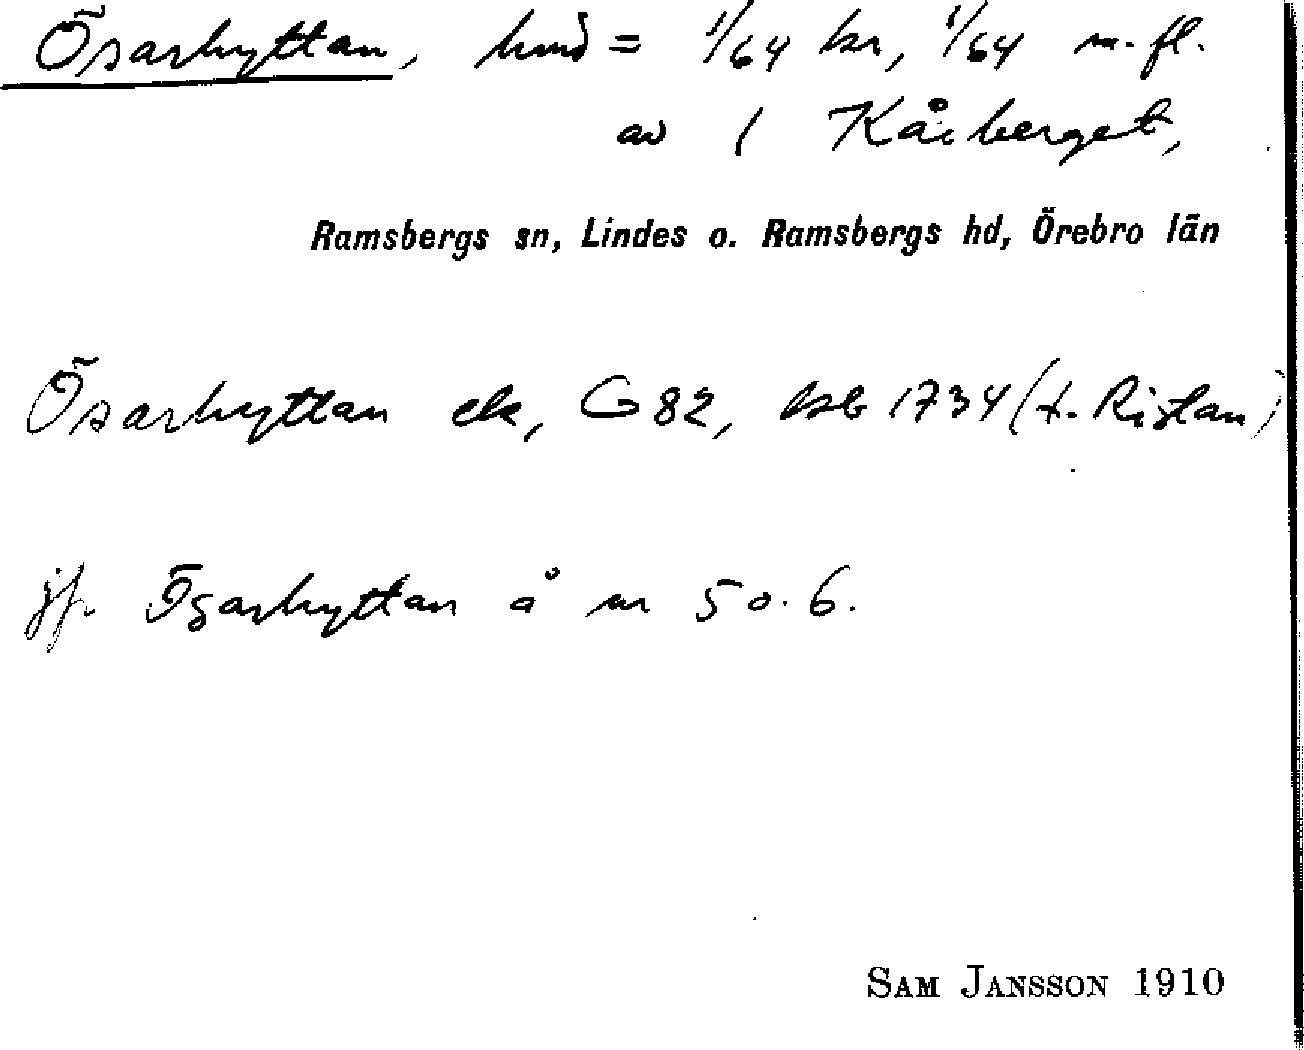 Ösarhyttan, hmd = 1/64 kr, 1/64 m. fl.
av 1 Kåiberget,
Ramsbergs sn, Lindes o. Ramsbergs hd, Örebro län
Ösarhyttan ek, G 82, ksb 1734 (t. Ristan)
jf. Ösarhyttan å nr 5 o. 6.
SAM JANSSON 1910